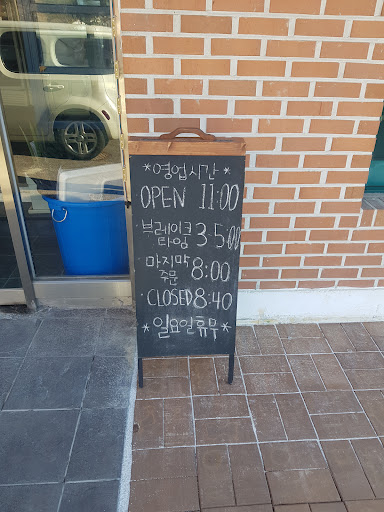 *영업시간*
OPEN 11:00
브레이크 타임 3-5:00
마지막 주문 8:00
CLOSED 8:40
*일요일휴무*